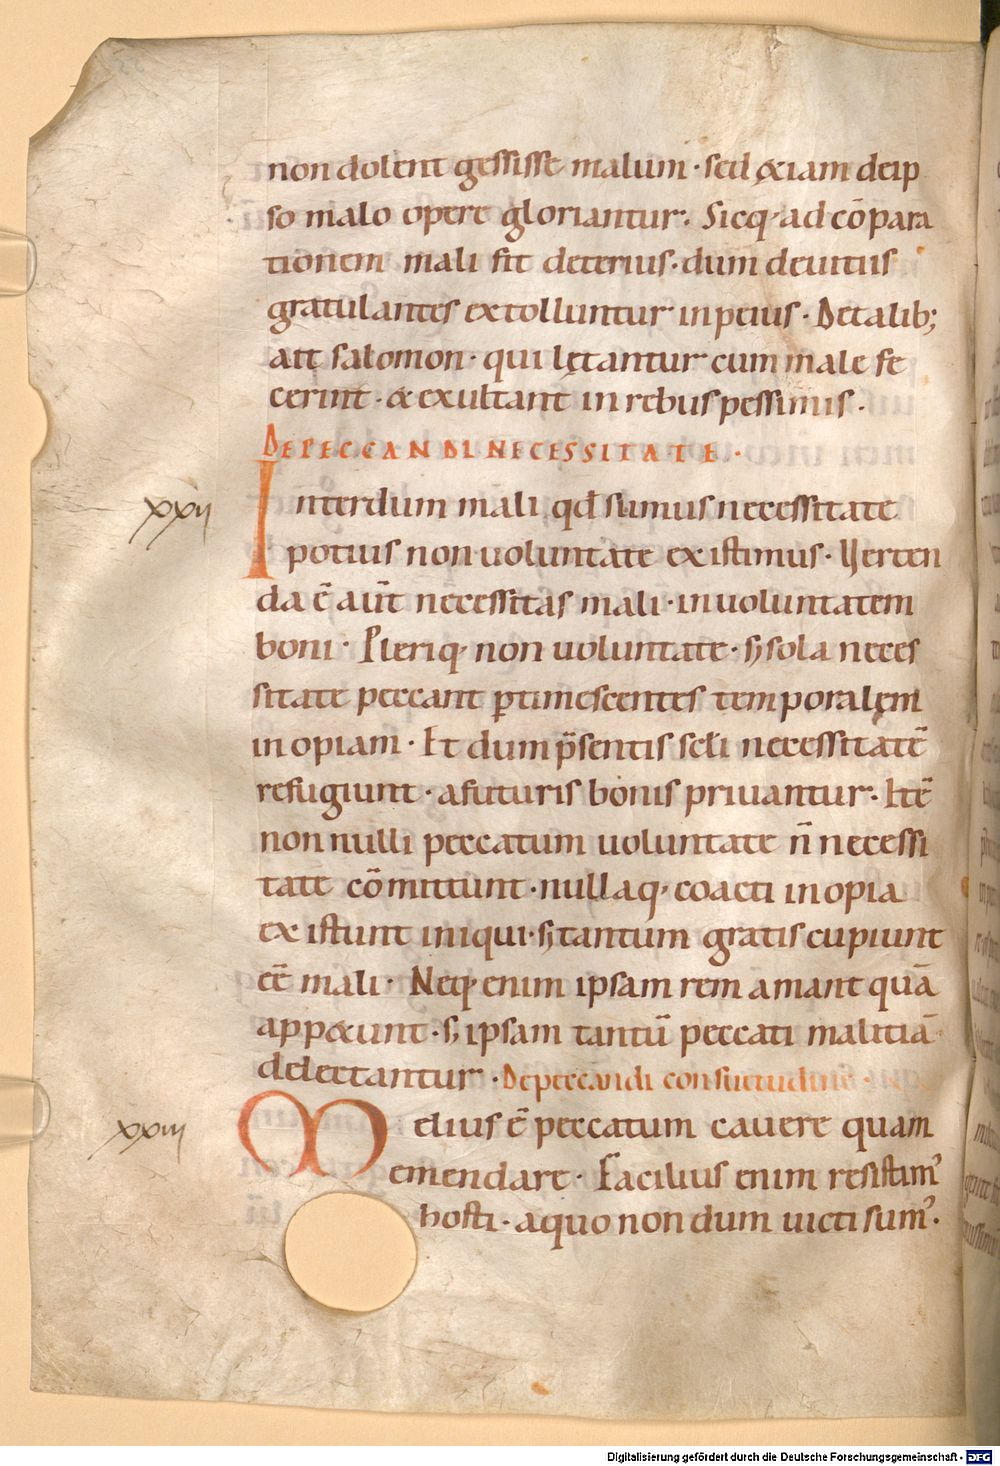 non dolent gessisse malum · sed &iam deip
so malo opere gloriantur. Sicq· ad cōpara
tionem mali fit deterius · dum deuitiis
gratulantes extolluntur inpeius · Detalib;
ait salomon · qui lętantur cum male fe
cerint · & exultant in rebus pessimis ·
DE PECCANDI NECESSITATE ·
xxii
Interdum mali qđ sumus necessitate
potius non uoluntate existimus · Uerten
da ē aūt necessitas mali · inuoluntatem
boni · Pleriq· non uoluntate · ꜱ sola neces
sitate peccant ꝑtimescentes temporalęm
inopiam · Et dum p̄sentis scłi necessitatē
refugiunt · afuturis bonis priuantur. Itē
non nulli peccatum uoluntate n̄ necessi
tate cōmittunt · nullaq· coacti inopia
existunt iniqui · ꜱ tantum gratis cupiunt
eē mali · Neq· enim ipsam rem amant quā
app&unt · ꜱ ipsam tantū peccati malitiā
delectantur · De peccandi consuetudine ·
xxiii
Melius ē peccatum cauere quam
emendare · Facilius enim resistim᾽
hosti · aquo non dum uicti sum᾽.
Digitalisierung gefördert durch die Deutsche Forschungsgemeinschaft - DFG